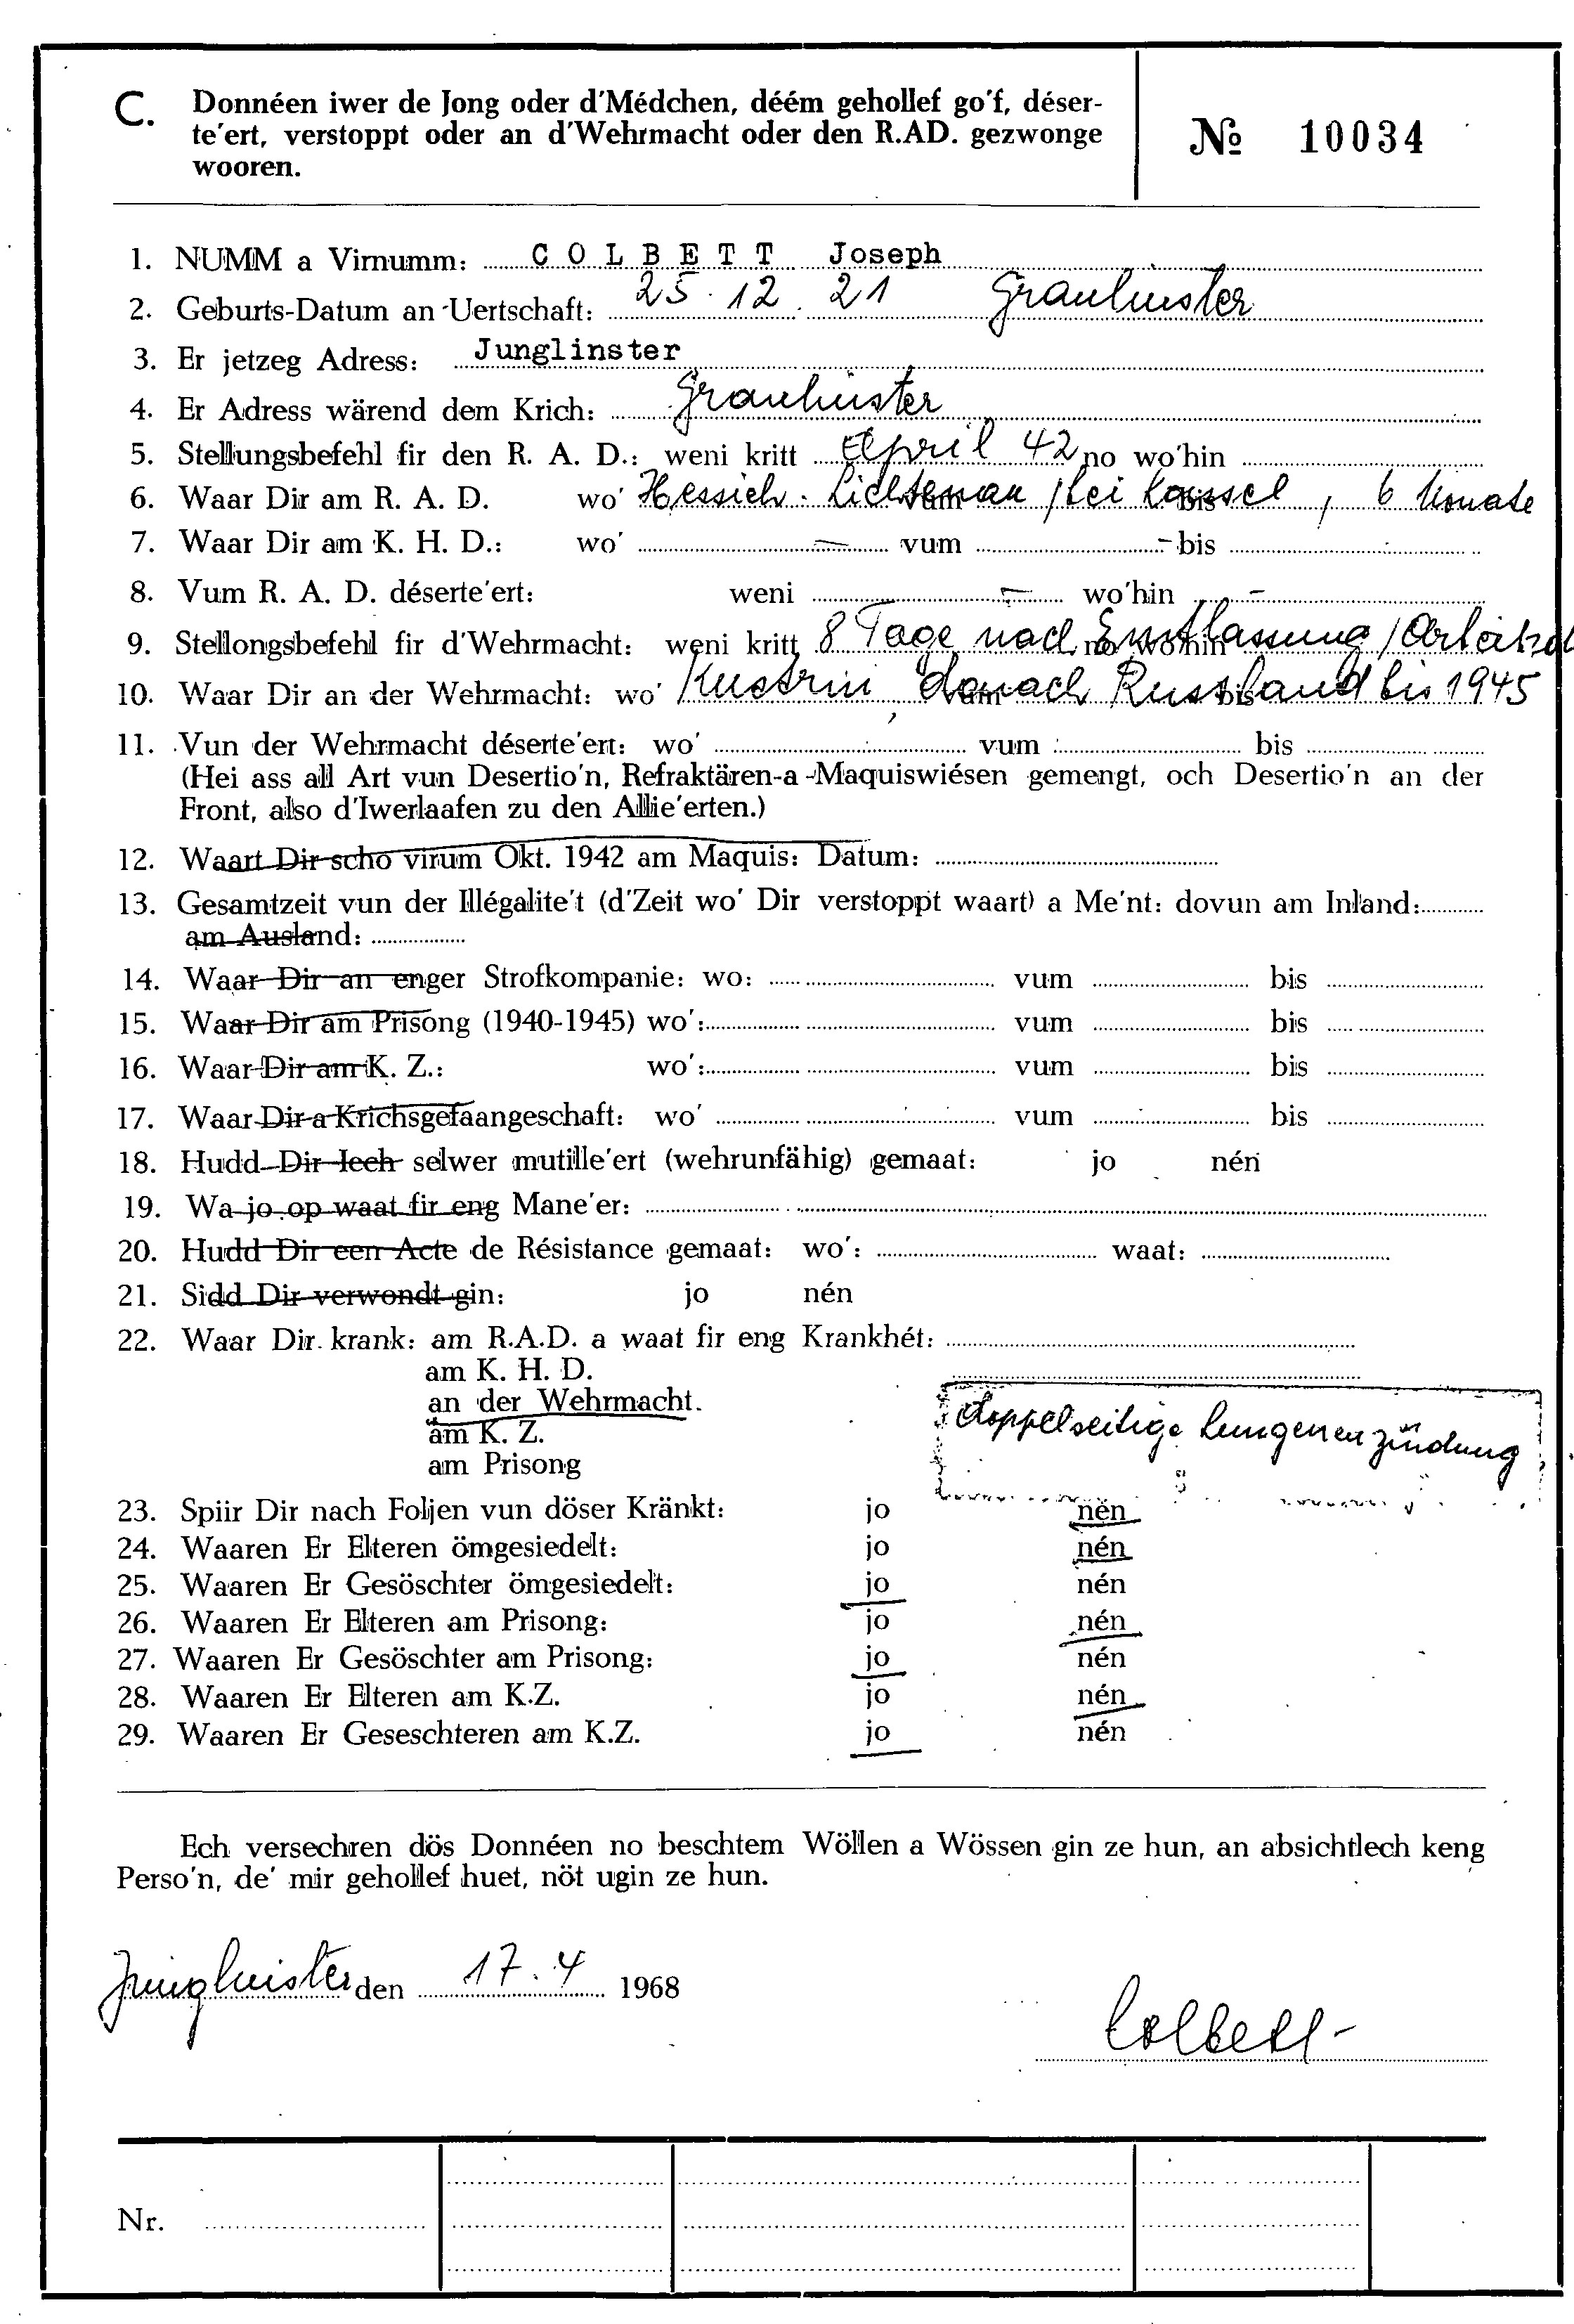 C. Donnéen iwer de Jong oder d'Médchen, déém gehollef go'f, déser-
te'ert, verstoppt oder an d'Wehrmacht oder den R.AD. gezwonge
wooren.
№ 10034
1. NUMM a Virnumm: COLBETT Joseph
2. Geburts-Datum an Uertschaft: 25.12.21 Graulinster
3. Er jetzeg Adress: Junglinster
4. Er Adress wärend dem Krich: Graulinster
5. Stellungsbefehl fir den R. A. D.: weni kritt April 42 no wo'hin
6. Waar Dir am R. A. D. wo' Hessich. Lichtenau / bei Kassel, 6 Monate vum bis
7. Waar Dir am K. H. D.: wo' — vum - bis
8. Vum R. A. D. déserte'ert: weni — wo'hin -
9. Stellongsbefehl fir d'Wehrmacht: weni kritt 8 Tage nach Entlassung / no wo'hin
10. Waar Dir an der Wehrmacht: wo' Kustrin, danach Russland bis 1945 vum bis
11. Vun der Wehrmacht déserte'ert: wo' vum bis
(Hei ass all Art vun Desertio'n, Refraktären-a-Maquiswiésen gemengt, och Desertio'n an der
Front, also d'Iwerlaafen zu den Allie'erten.)
12. Waart Dir scho virum Okt. 1942 am Maquis: Datum:
13. Gesamtzeit vun der Illégalite't (d'Zeit wo' Dir verstoppt waart) a Me'nt: dovun am Inland:
am Ausland:
14. Waar Dir an enger Strofkompanie: wo: vum bis
15. Waar Dir am Prisong (1940-1945) wo': vum bis
16. Waar Dir am K. Z.: wo': vum bis
17. Waar Dir a Krichsgefaangeschaft: wo' vum bis
18. Hudd Dir Iech selwer mutille'ert (wehrunfähig) gemaat: jo nén
19. Wa jo op waat fir eng Mane'er:
20. Hudd Dir een Acte de Résistance gemaat: wo': waat:
21. Sidd Dir verwondt gin: jo nén
22. Waar Dir krank: am R.A.D. a waat fir eng Krankhét:
am K. H. D.
an der Wehrmacht.
doppelseitige Lungenenzündung
am K. Z.
am Prisong
23. Spiir Dir nach Foljen vun döser Kränkt: jo nén
24. Waaren Er Elteren ömgesiedelt: jo nén
25. Waaren Er Gesöschter ömgesiedelt: jo nén
26. Waaren Er Elteren am Prisong: jo nén
27. Waaren Er Gesöschter am Prisong: jo nén
28. Waaren Er Elteren am K.Z. jo nén
29. Waaren Er Geseschteren am K.Z. jo nén
Ech versechren dös Donnéen no beschtem Wöllen a Wössen gin ze hun, an absichtlech keng
Perso'n, de' mir gehollef huet, nöt ugin ze hun.
Junglinster den 17.4 1968
Colbett
Nr.